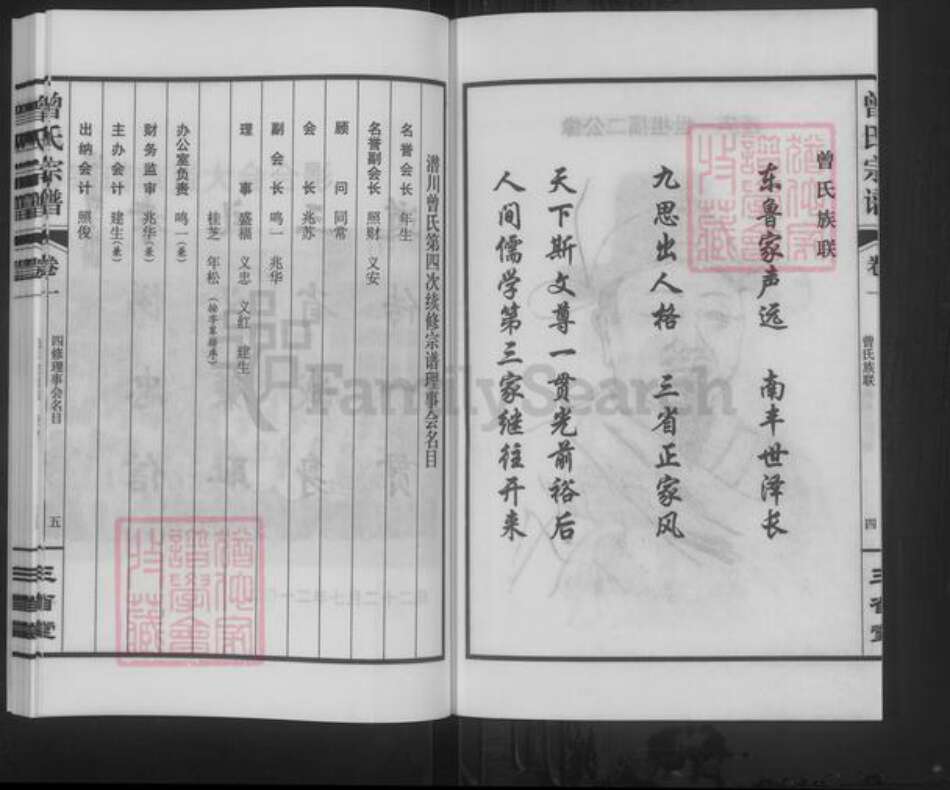 曾氏族联
东鲁家声远　南丰世泽长
九思出人格　三省正家风
天下斯文尊一贯光前裕后
人间儒学第三家继往开来
曾氏宗谱
卷一
曾氏族联
四
三省堂
潜川曾氏第四次续修宗谱理事会名目
名誉会长　年生
名誉副会长　照财　义安
顾问　同常
会长　兆苏
副会长　鸣一　兆华
理事　盛福　义忠　义红　建生
桂芝　年松
办公室负责　鸣一（兼）
财务监审　兆华（兼）
主办会计　建生（兼）
出纳会计　照俊
曾氏宗谱
卷一
四修理事会名目
五
三省堂
FamilySearch